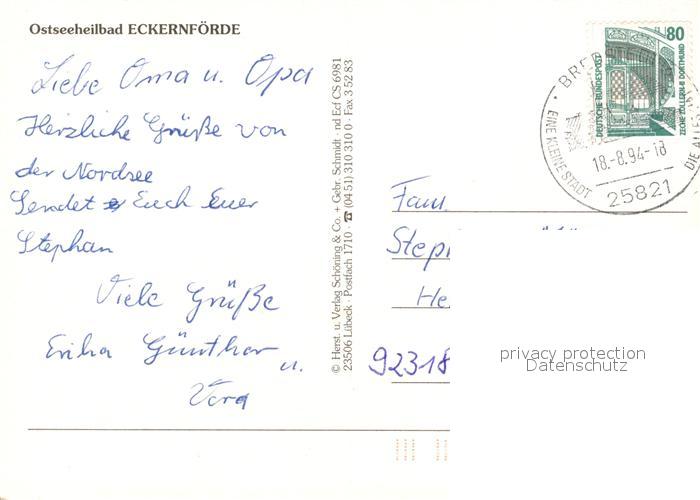 Ostseeheilbad ECKERNFÖRDE
Liebe Oma u. Opa
Herzliche Grüße von
der Nordsee
Sendet Euch Euer
Stephan
Viele Grüße
Erika Günther u.
Vera
© Herst. u. Verlag Schöning & Co. + Gebr. Schmidt · rd Ecf CS 6981
23506 Lübeck · Postfach 1710 · ☎ (04 51) 310 310 0 · Fax 3 52 83
80
DEUTSCHE BUNDESPOST
ZECHE ZOLLERN II DORTMUND
BRED
EINE KLEINE STADT
DIE ALLES
18.-8.94-18
25821
Fam.
Step
He
92318
privacy protection
Datenschutz